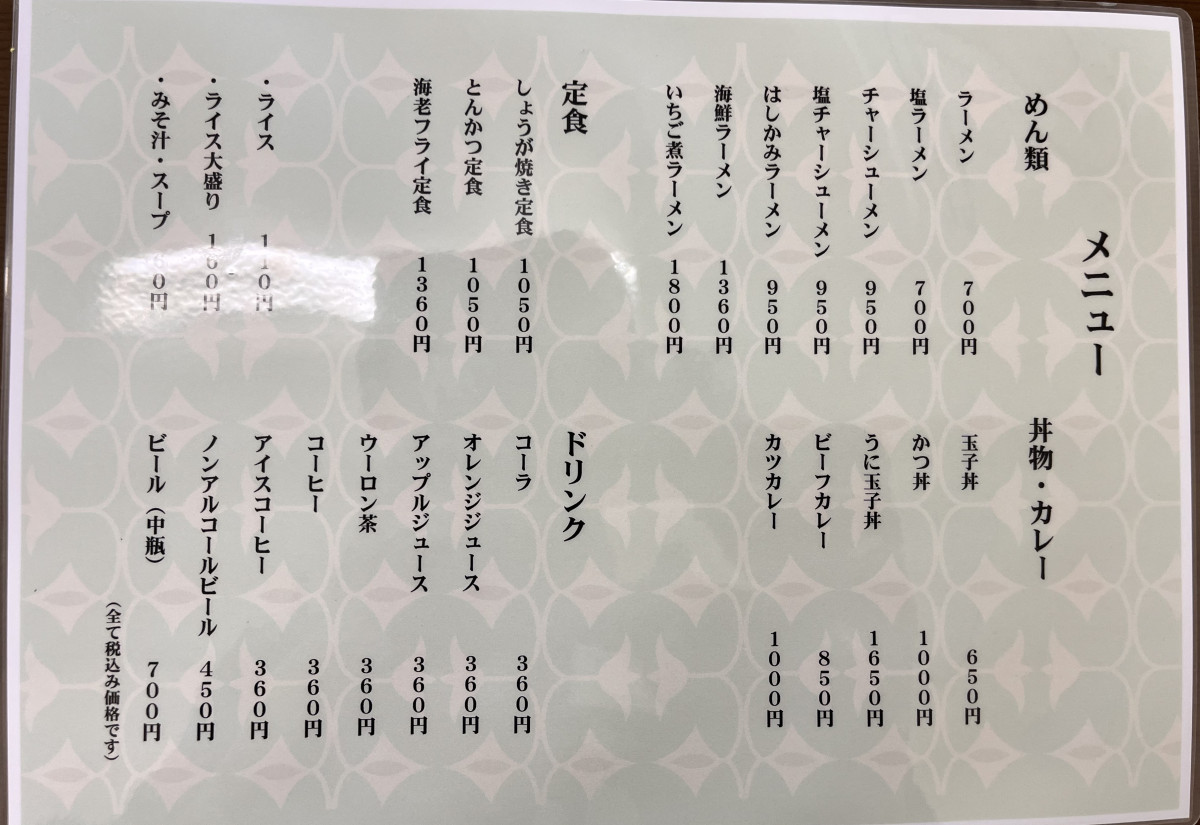 メニュー
めん類
ラーメン 700円
塩ラーメン 700円
チャーシューメン 950円
塩チャーシューメン 950円
はしかみラーメン 950円
海鮮ラーメン 1360円
いちご煮ラーメン 1800円
丼物・カレー
玉子丼 650円
かつ丼 1000円
うに玉子丼 1650円
ビーフカレー 850円
カツカレー 1000円
定食
しょうが焼き定食 1050円
とんかつ定食 1050円
海老フライ定食 1360円
・ライス 110円
・ライス大盛り
・みそ汁・スープ
ドリンク
コーラ 360円
オレンジジュース 360円
アップルジュース 360円
ウーロン茶 360円
コーヒー 360円
アイスコーヒー 360円
ノンアルコールビール 450円
ビール（中瓶） 700円
（全て税込み価格です）